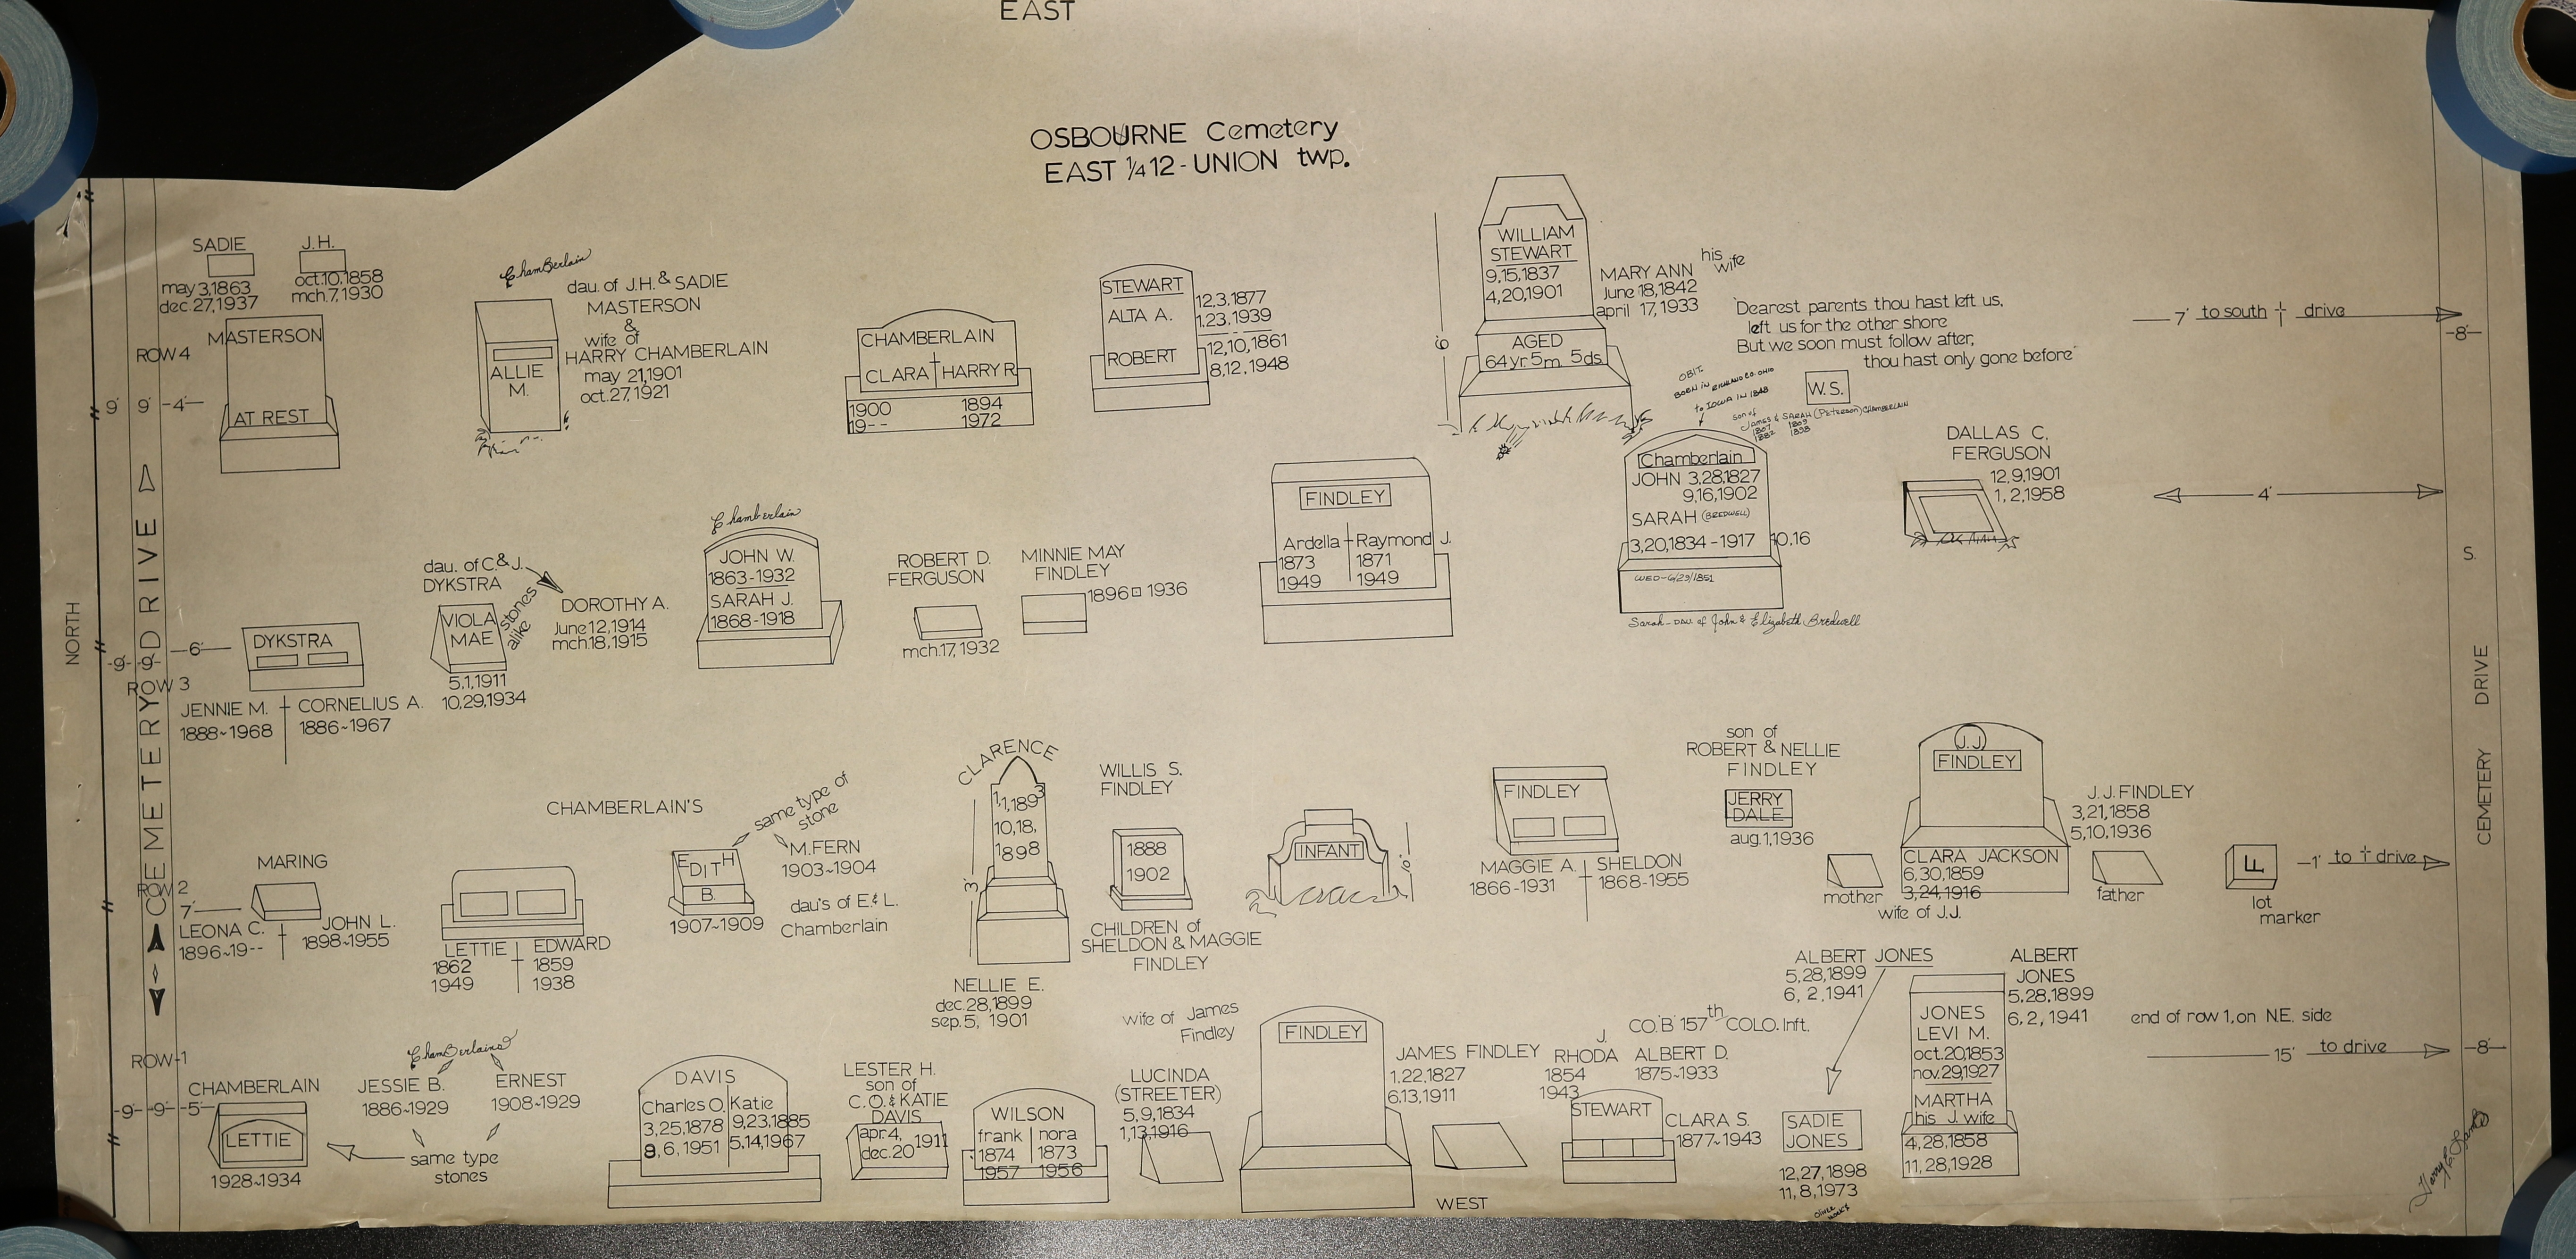 EAST
OSBOURNE Cemetery
EAST 1/4 12 - UNION twp.
SADIE
may 3,1863
dec. 27,1937
J.H.
oct.10,1858
mch.7,1930
MASTERSON
AT REST
ROW 4
9' 9' -4'-
Chamberlain
dau. of J.H. & SADIE
MASTERSON
&
wife of
HARRY CHAMBERLAIN
may 21,1901
oct.27,1921
ALLIE
M.
CHAMBERLAIN
CLARA HARRY R.
1900 1894
19-- 1972
STEWART
ALTA A.
12.3.1877
1.23.1939
ROBERT
12,10,1861
8,12,1948
6'
WILLIAM
STEWART
9,15,1837
4,20,1901
AGED
64 yr. 5m. 5ds.
MARY ANN his
wife
June 18,1842
april 17,1933
"Dearest parents thou hast left us,
left us for the other shore
But we soon must follow after,
thou hast only gone before"
W.S.
7' to south † drive
-8'-
OBIT.
BORN IN RICHLAND CO. OHIO
to IOWA IN 1848
son of
James & SARAH (Peterson) CHAMBERLAIN
1807 1809
1882 1898
Chamberlain
JOHN 3.28,1827
9,16,1902
SARAH (BREDWELL)
3,20,1834 - 1917 10.16
WED - 6/29/1851
Sarah - dau. of John & Elizabeth Bredwell
DALLAS C.
FERGUSON
12.9.1901
1, 2,1958
4'
NORTH
CEMETERY DRIVE
-9'- -9'- -6'-
ROW 3
DYKSTRA
JENNIE M. CORNELIUS A.
1888~1968 1886~1967
dau. of C.& J.
DYKSTRA
VIOLA
MAE
5.1,1911
10.29,1934
stones
alike
DOROTHY A.
June 12,1914
mch.18,1915
Chamberlain
JOHN W.
1863-1932
SARAH J.
1868-1918
ROBERT D.
FERGUSON
mch.17, 1932
MINNIE MAY
FINDLEY
1896 1936
FINDLEY
Ardella Raymond J.
1873 1871
1949 1949
S.
CEMETERY DRIVE
ROW 2
7'
MARING
LEONA C. JOHN L.
1896~19-- 1898~1955
CHAMBERLAIN'S
LETTIE EDWARD
1862 1859
1949 1938
EDITH
B.
1907~1909
same type of
stone
M.FERN
1903~1904
dau's of E.& L.
Chamberlain
CLARENCE
1,1,1893
10,18,
1898
3'
NELLIE E.
dec.28,1899
sep.5, 1901
WILLIS S.
FINDLEY
1888
1902
CHILDREN of
SHELDON & MAGGIE
FINDLEY
INFANT
10"
FINDLEY
MAGGIE A. SHELDON
1866-1931 1868-1955
son of
ROBERT & NELLIE
FINDLEY
JERRY
DALE
aug.1,1936
J.J.
FINDLEY
CLARA JACKSON
6,30,1859
3,24,1916
wife of J.J.
mother
J.J. FINDLEY
3,21,1858
5,10,1936
father
F
lot
marker
-1' to † drive
ROW-1
-9'- -9'- -5'-
CHAMBERLAIN
LETTIE
1928~1934
Chamberlains
JESSIE B.
1886~1929
ERNEST
1908~1929
same type
stones
DAVIS
Charles O. Katie
3,25,1878 9,23,1885
8, 6, 1951 5,14,1967
LESTER H.
son of
C.O. & KATIE
DAVIS
apr.4,
dec.20 1911
WILSON
frank nora
1874 1873
1957 1956
wife of James
Findley
LUCINDA
(STREETER)
5,9,1834
1,13,1916
FINDLEY
JAMES FINDLEY
1,22,1827
6.13,1911
WEST
J.
RHODA
1854
1943
CO.'B' 157th COLO. Inft.
ALBERT D.
1875~1933
STEWART
CLARA S.
1877~1943
ALBERT JONES
5,28,1899
6, 2,1941
SADIE
JONES
12,27,1898
11,8,1973
JONES
LEVI M.
oct.20,1853
nov.29,1927
MARTHA
his J. wife
4,28,1858
11,28,1928
ALBERT
JONES
5.28,1899
6,2, 1941
end of row 1, on N.E. side
15' to drive
-8'-